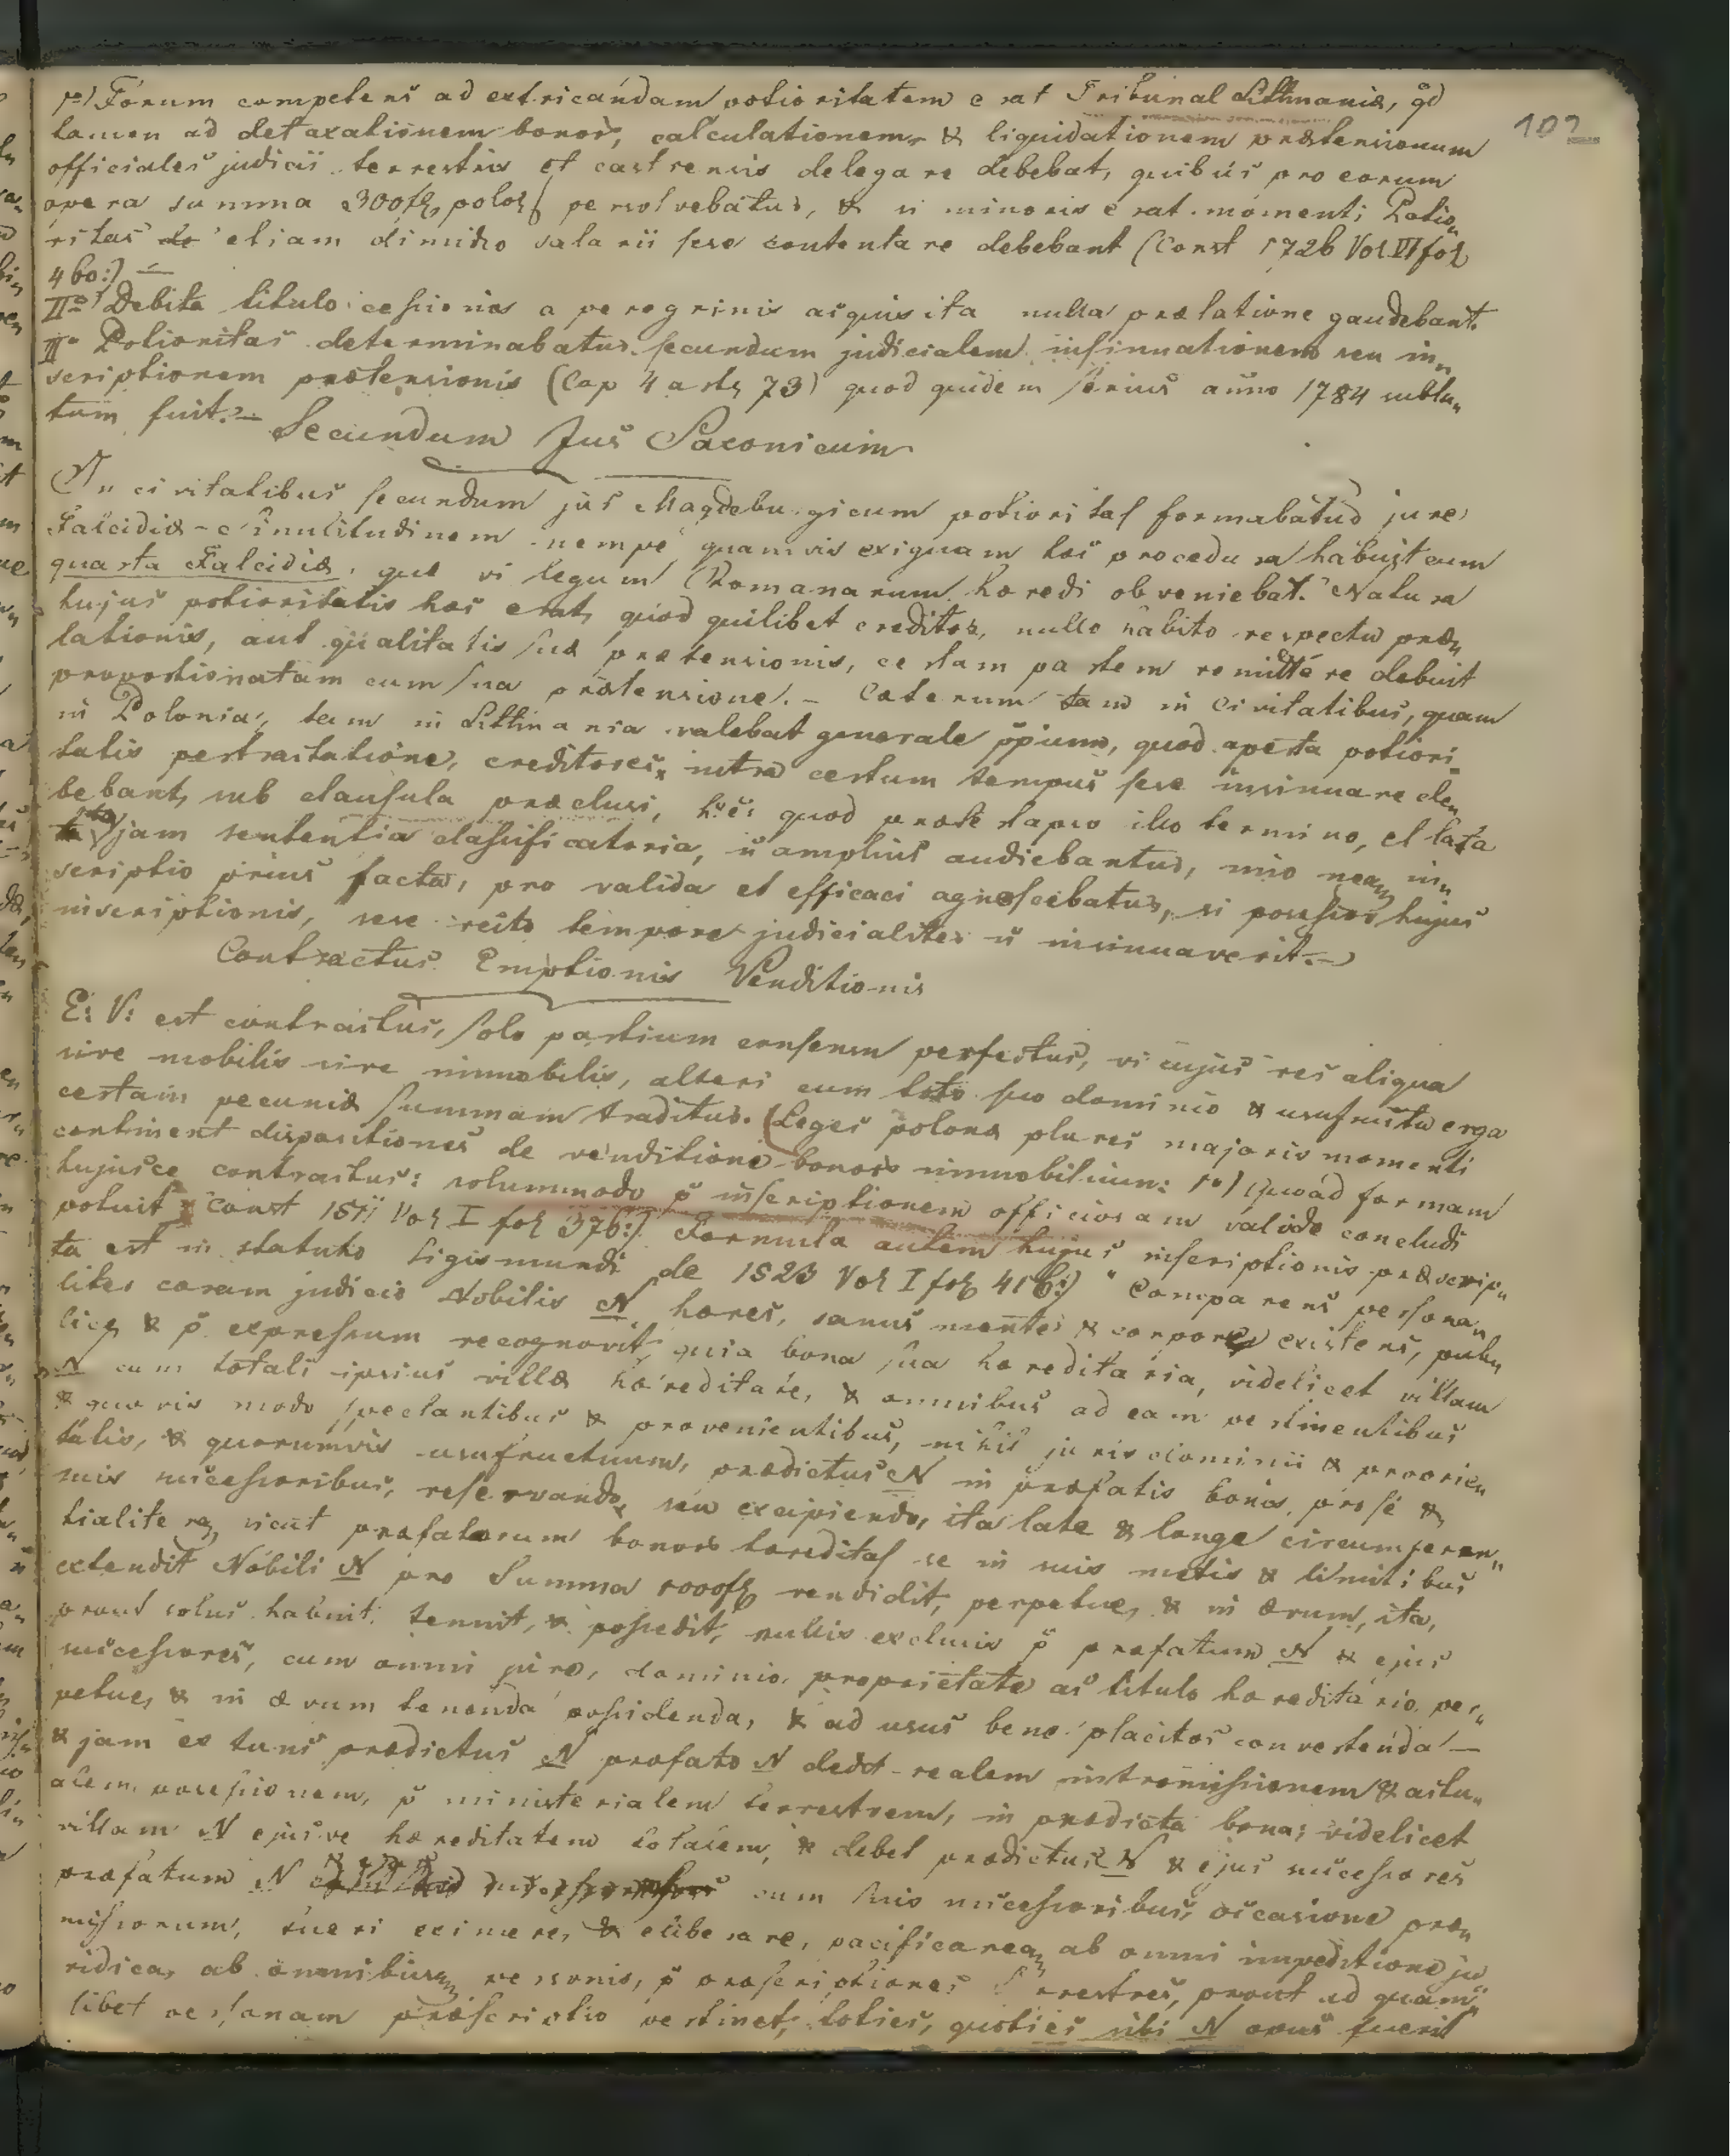 1o) Forum competens ad extricandam potioritatem erat Tribunal Litthvaniæ, qd
102
tamen ad detaxationem bonor, calculationem & liquidationem prætensionum
officiales judicii terrestris et castrensis delegare debebat, quibus pro eorum
opera summa 300 fl polo persolvebatur, & si minoris erat momenti Potio„
ritas etiam dimidio salarii sese contentare debebant (Const 1726 Vol VI fol
460:) —
IIo) Debita titulo cessionis a peregrinis acquisita nulla prælatione gaudebant.
IIo Potioritas determinabatur secundum judicialem insinuationem seu in„
scriptionem prætensionis (Cap 4 art 73) quod quidem serius anno 1784 subla„
tum fuit. —
Secundum Jus Saxonicum
In civitatibus secundum jus Magdeburgicum potioritas formabatur jure
Falcidiæ - similitudinem nempe quamvis exiguam hæc procedura habuit cum
quarta Falcidiæ, quæ vi legum Romanarum hæredi obveniebat. Natura
hujus potioritatis hæc erat, quod quilibet creditor, nullo habito respectu præ„
lationis, aut qualitatis suæ prætensionis, certam partem remittere debuit
proportionatam cum sua prætensione. — Cæterum tam in civitatibus, quam
in Polonia, tam in Litthvania valebat generale ppium, quod aperta potiori„
tatis pertractatione, creditores, intra certum tempus sese insinuare de„
bebant, sub clausula præclusi, h: e: quod præterlapso illo termino, et lata
jam sententia classificatoria, n amplius audiebantur, imo neq in„
scriptio prius facta, pro valida et efficaci agnoscebatur, si possessor hujus
inscriptionis, sese recto tempore judicialiter n insinuaverit. —
Contractus Emptionis Venditionis
E: V: est contractus, solo partium consensu perfectus, vi cujus res aliqua
sive mobilis sive immobilis, alteri cum toto suo dominio & usufructu erga
certam pecuniæ summam traditur. (Leges polonæ plures majoris momenti
continent dispositiones de venditione bonor immobilium: 1o) Quoad formam
hujusce contractus: solummodo p inscriptionem officiosam valide concludi
potuit Const 1511 Vol I fol 376:) Formula autem hujus inscriptionis præscrip„
ta est in statuto Sigismundi de 1523 Vol I fol 416:) "Comparens persona„
liter coram judicio Nobilis N hæres, sanus mente & corpore existens, pub„
lice & p expressum recognovit, quia bona sua hæreditaria, videlicet villam
N cum totali ipsius villæ hæreditate, & omnibus ad eam pertinentibus
& quovis modo spectantibus & provenientibus, nihil juris dominii & proprie„
tatis, & quorumvis usufructuum, prædictus N in præfatis bonis, pro se &
suis successoribus, reservando, seu excipiendo, ita late & longe circumferen„
tialiterq, sicut præfatorum bonor hæreditas se in suis metis & limitibus
extendit Nobili N pro Summa 1000 fl vendidit, perpetue, & in ævum, ita,
prout solus habuit, tenuit, & possedit, nullis exclusis p præfatum N & ejus
successores, cum omni jure, dominio, proprietate ac titulo hæreditario, per„
petue, & in ævum tenenda possidenda, & ad usus bene placitos convertenda —
& jam ex tunc prædictus N præfato N dedit realem intromissionem & actu„
alem possessionem, p ministerialem terrestrem, in prædicta bona; videlicet
villam N ejusve hæreditatem totalem, & debet prædictus N & ejus successores
præfatum N cum suis successoribus, occasione præ„
missorum, tueri eximere, & elibe rare, pacificareq ab omni impeditione ju„
ridica, ab omnibusq personis, p præscriptiones terrestres, prout ad quam„
libet personam præscriptio pertinet, toties, quoties sibi N opus fuerit